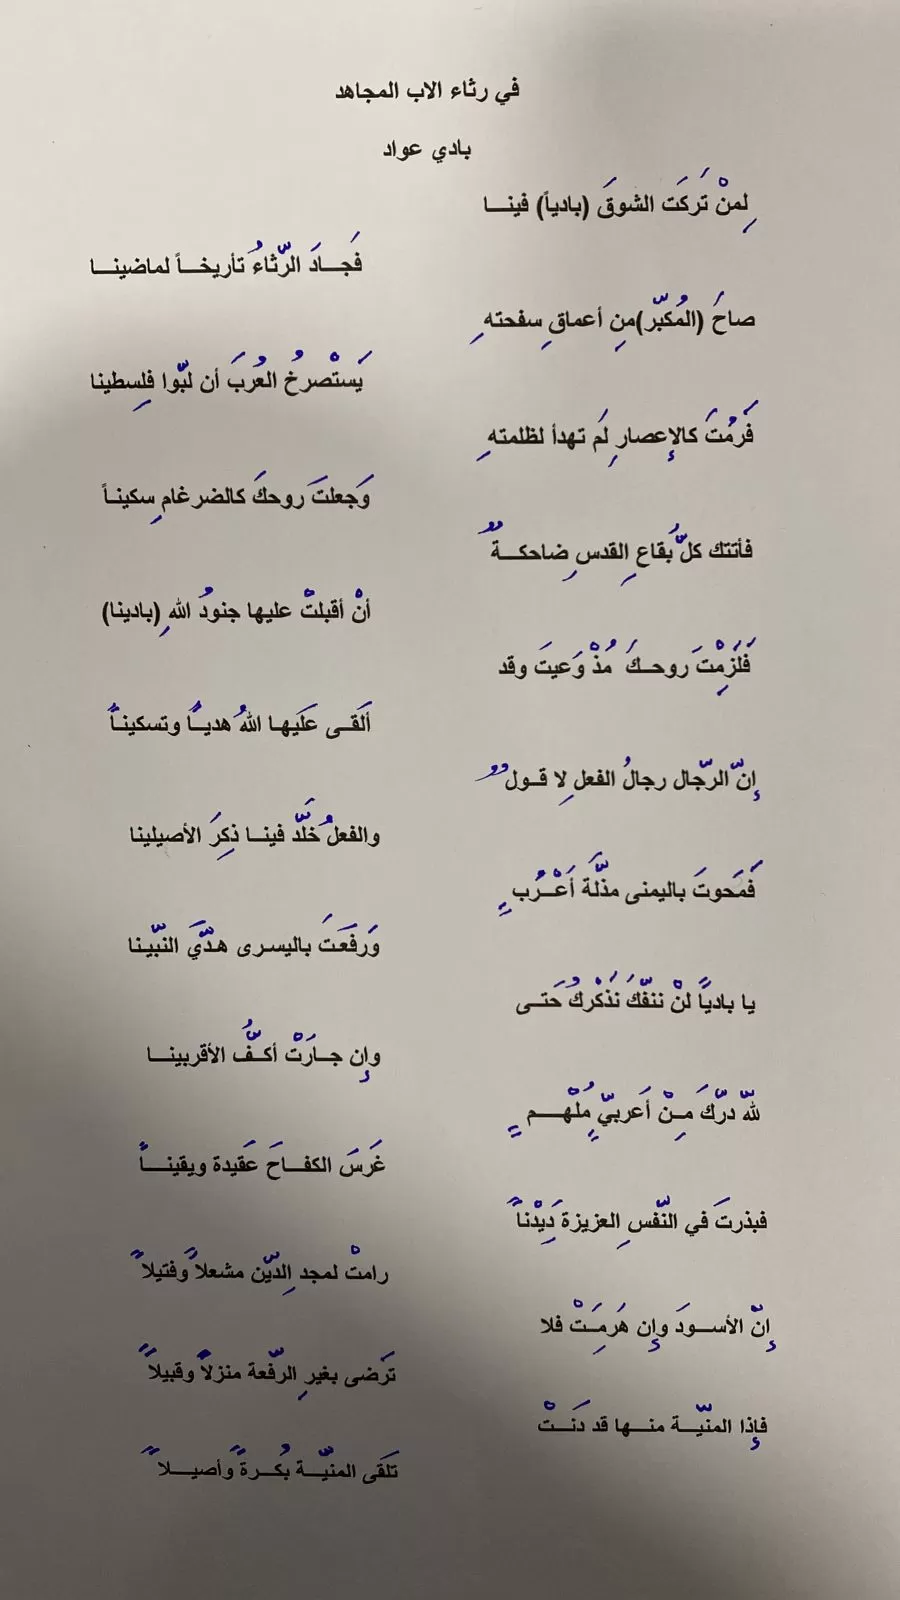 في رثاء الاب المجاهد
بادي عواد
لِمنْ تَركَت الشوقَ (بادياً) فينـــا
فَجـــادَ الرّثاءُ تأريخـــاً لماضينـــا
صاحَ (المُكبّر)مِن أعماقِ سفحتهِ
يَستْصرخُ العُربَ أن لبّوا فلِسطينا
فَرمُتَ كالإعصارِ لَم تهدأ لظلمتهِ
وَجعلتَ روحكَ كالضرغامِ سكينـاً
فأتتك كلُّ بُقاعِ القدسِ ضاحكـــةٌ
أنْ أقبلتْ عليها جنودُ اللهِ (بادينا)
فَلَزِمْتَ روحــكَ مُذْ وَعيتَ وقد
ألَقــى عَلَيهـا اللهُ هديـــاً وتسكينـاً
إنّ الرّجال رجالُ الفعلِ لا قــولٌ
والفعلُ خلَّد فينــا ذكِرَ الأصيلينا
فَمَحوتَ باليمنى مذّلَة أَعْــرُبٍ
وَرفَعَتَ باليسرى هـدّيَ النبّيـنا
يا بادياً لنْ ننفّكَ نَذَكْركُ حَتــى
وإن جــارَتْ أكــفُّ الأقربينـــا
للهّ درّكَ مـِنْ أَعربيٍّ مُلْهــــمٍ
غَرسَ الكفــاحَ عَقيدة ويقينـــاً
فبذرتَ في النّفسِ العزيزة دَيِدْناً
رامتْ لمجد الِديّن مشعلاً وفتيلاً
إنّ الأســـودَ وإن هَرمَِـتْ فلا
تَرضى بغيرِ الرّفعة منزلاً وقبيلاً
فإذا المنيّـــة منـــها قد دَنــتْ
تلَقى المنيّـــة بُكــرةً وأصيـــلاً